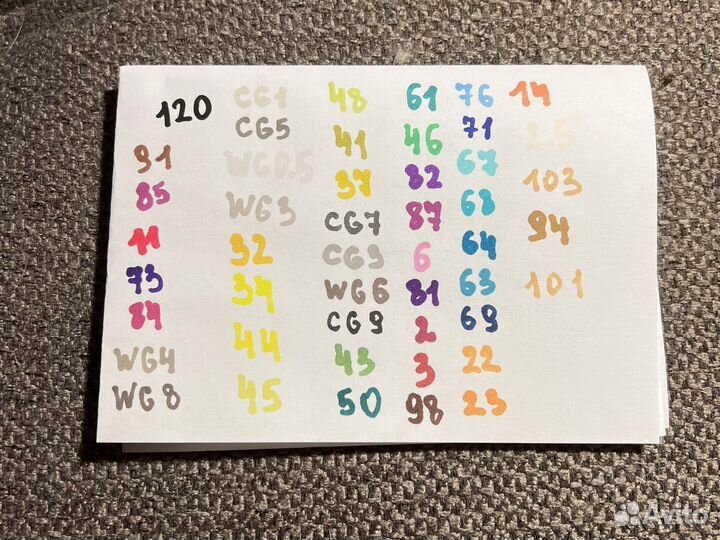 120
91
85
11
73
84
WG4
WG8
CG1
CG5
WG0.5
WG3
32
34
44
45
48
41
37
CG7
CG3
WG6
CG9
43
50
61
46
82
87
6
81
2
3
98
76
71
67
68
64
63
69
22
23
14
25
103
94
101
Avito